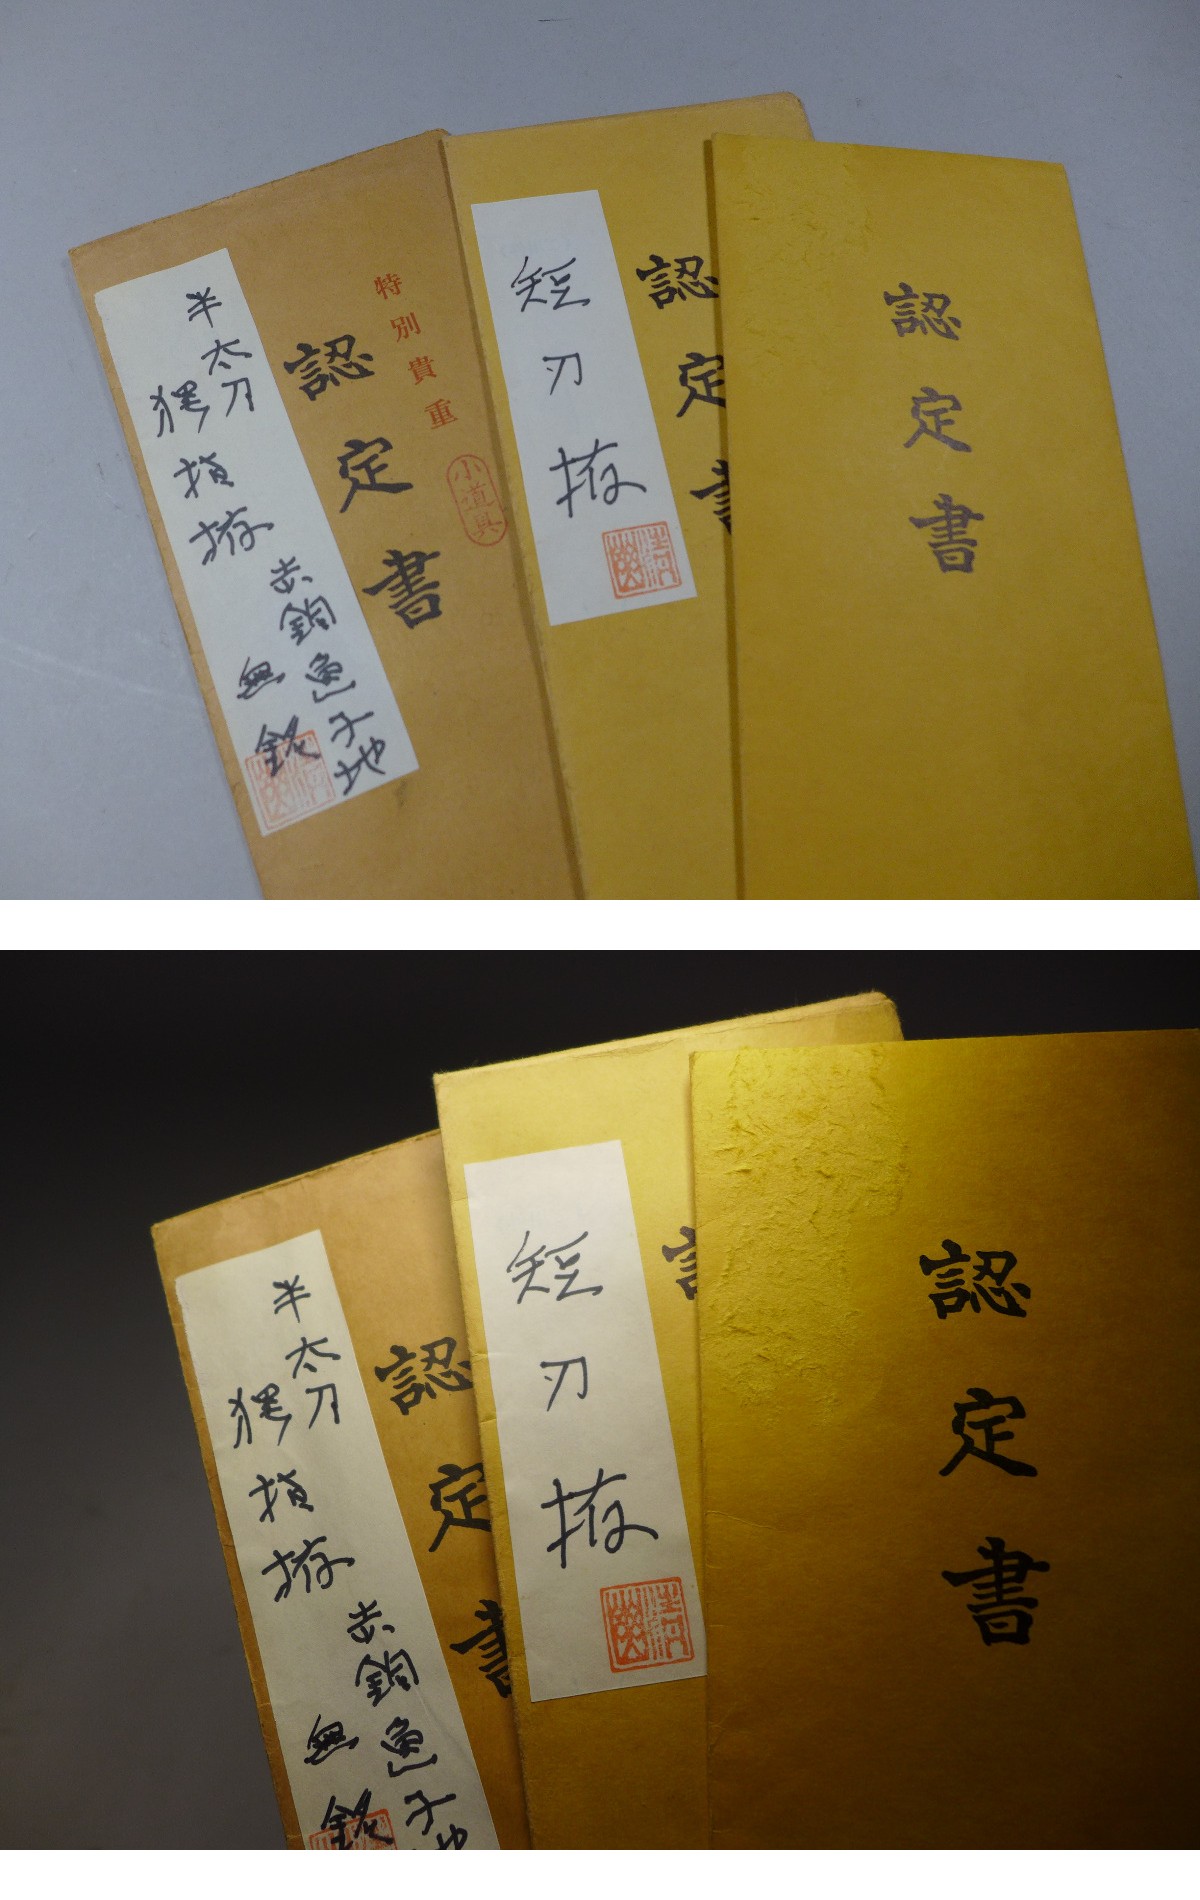 特別貴重
小道具
認定書
半太刀
拵
赤銅魚子地
無銘
認定書
短刀拵
認定書
認定書
半太刀
拵
赤銅魚子地
無銘
認
短刀拵
認定書